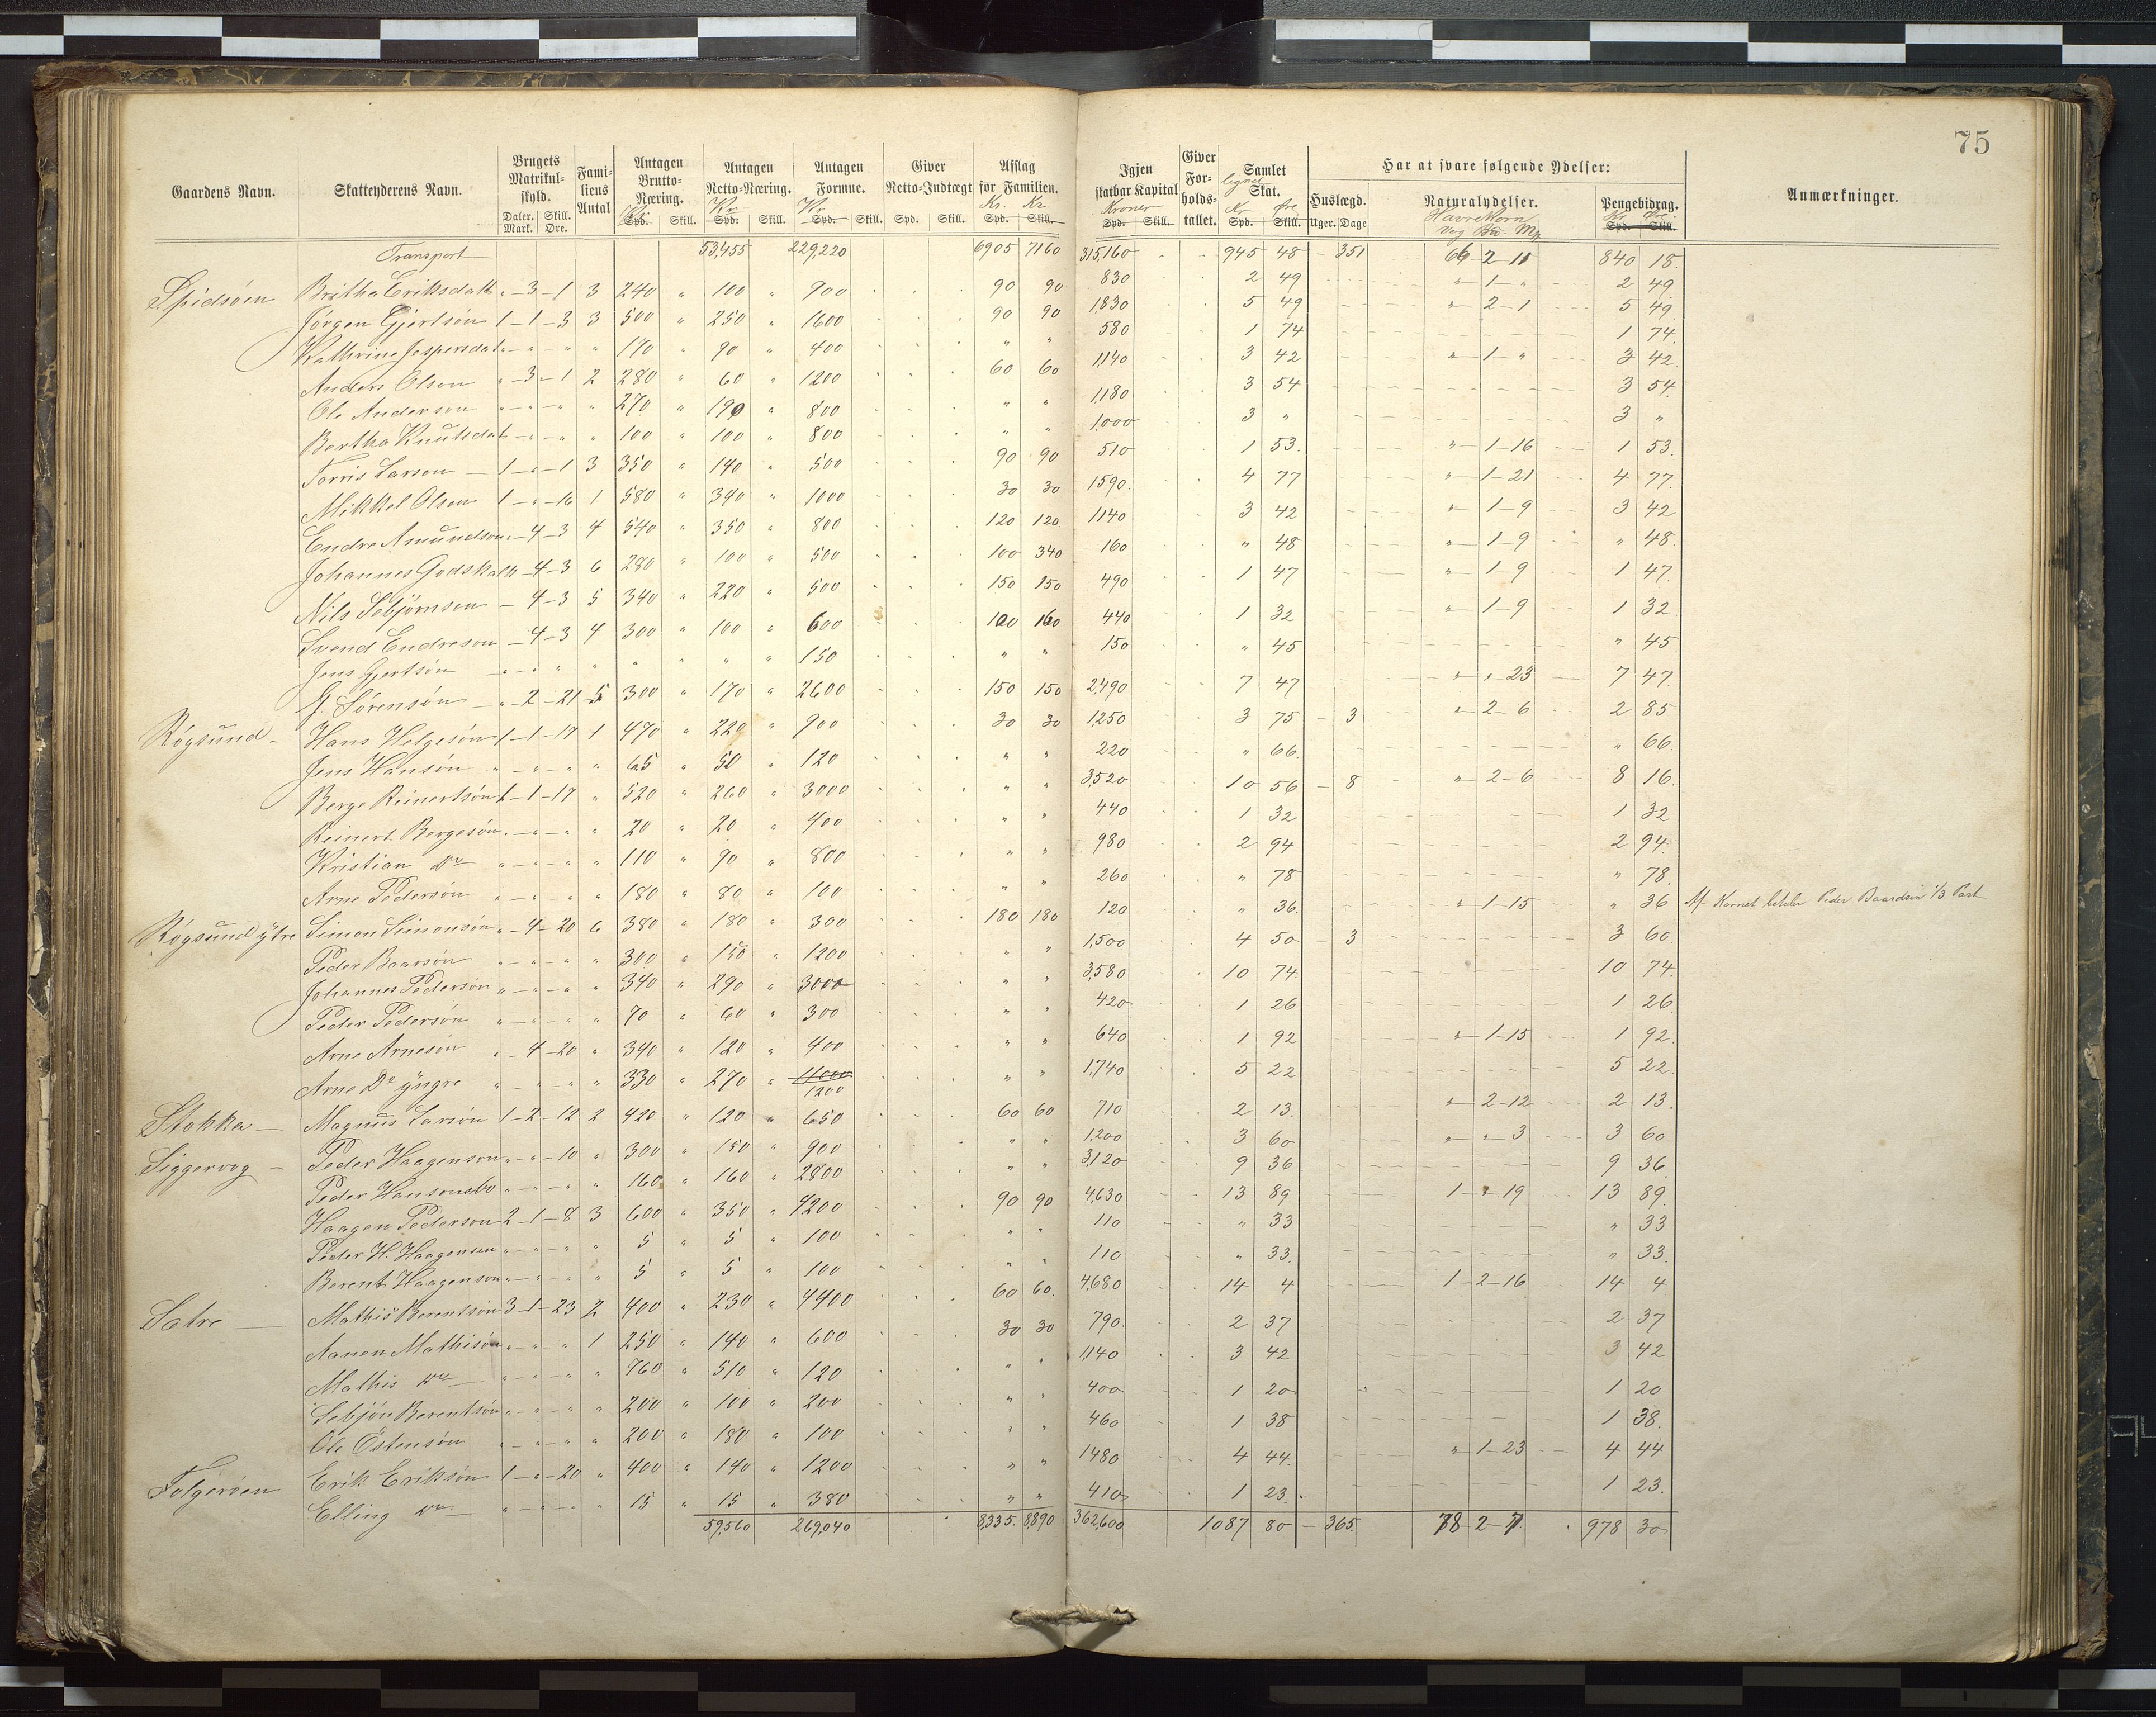 75
Gaardens Navn. Skatteyderens Navn. Brugets Matrikulskyld. Daler. Skill. Mark. Øre. Familiens Antal Antagen Brutto-Næring. Kr Spd. Skill. Antagen Netto-Næring. Kr Spd. Skill. Antagen Formue. Kr Spd. Skill. Giver Netto-Indtægt Spd. Skill. Afslag for Familien. Kr. Kr Spd. Skill. Igjen skatbar Kapital Kroner Spd. Skill. Giver Forholdstallet. Samlet lignet Skat. Kr Øre Spd. Skill. Har at svare følgende Ydelser: Huslægd. Uger. Dage Naturalydelser. Havre Korn Vog Mg Pengebidrag. Kr Øre. Spd. Skill. Anmærkninger.
Transport 53,455 229,220 6905 7160 315,160 945 48 - 351 66 2 - 11 840 18.
Spidsöen Britha Eriksdatt „ - 3 - 1 3 240 „ 100 „ 900 90 90 830 2 49 „ - 1 - „ 2 49
Jörgen Gjertsön 1 - 1 - 3 3 500 „ 250 „ 1600 90 90 1,830 5 49 „ - 2 - 1 5 49
Kathrine Jespersdat „ - „ - „ „ 170 „ 90 „ 400 „ „ 580 1 74 1 74.
Anders Olson „ - 3 - 1 2 280 „ 60 „ 1200 60 60 1,140 3 42 „ - 1 - „ 3 42
Ole Anderson „ - „ - „ „ 270 „ 190 „ 800 „ „ 1,180 3 54 3 54.
Bertha Knutsdat „ - „ - „ „ 100 „ 100 „ 800 „ „ 1,000 3 „ 3 „
Torris Larson 1 - „ - 1 3 350 „ 140 „ 500 90 90 510 1 53. „ - 1 - 16 1 53.
Mikkel Olson 1 - „ - 16 1 580 „ 340 „ 1000 30 30 1590. 4 77 „ - 1 - 21 4 77.
Endre Amundson „ - 4 - 3 4 540 „ 350 „ 800 120 120 1140 3 42 „ - 1 - 9 3 42
Johannes Godskalk - 4 - 3 6 280 „ 100 „ 500 100 340 160 „ 48 „ - 1 - 9 „ 48.
Nils Sebjörnson - 4 - 3 5 340 „ 220 „ 500 150 150 490 1 47 „ - 1 - 9 1 47.
Svend Endreson - 4 - 3 4 300 „ 100 „ 600 100 160 440 1 32 „ - 1 - 9 1 32.
Jens Gjertsön „ - „ „ „ „ „ „ „ 150 „ „ 150 „ 45 „ 45
G Sörensön „ - 2 - 21 5 300 „ 170 „ 2600 150 150 2,490 7 47 „ „ 23 7 47.
Rögsund - Hans Helgesön 1 - 1 - 17 1 470 „ 220 „ 900 30 30 1,250 3 75 - 3 „ - 2 - 6 2 85
Jens Hansön „ - „ - „ „ 65 „ 50 „ 120 „ „ 220 „ 66. „ 66.
Berge Reinertsön 1 - 1 - 17 „ 520 „ 260 „ 3000 „ „ 3,520 10 56 - 8 „ - 2 - 6 8 16.
Reinert Bergesön „ - „ - „ „ 20 „ 20 „ 400 „ „ 440 1 32 1 32
Kristian Do „ - „ - „ „ 110 „ 90 „ 800 „ „ 980 2 94 2 94.
Arne Pedersön „ - „ - „ „ 180 „ 80 „ 100 „ „ 260 „ 78 „ 78.
Rögsund ytre Simon Simonsön „ - 4 - 20 6 380 „ 180 „ 300 180 180 120 „ 36. „ - 1 - 15 „ 36 Af Kornet betaler Peder Baardsön 1/3 Part
Peder Baarsön „ - „ - „ „ 300 „ 150 „ 1200 „ „ 1,500 4 50 - 3 3 60
Johannes Pedersön „ - „ - „ „ 340 „ 290 „ 3000 „ „ 3,580 10 74 10 74.
Peder Pedersön „ - „ - „ „ 70 „ 60 „ 300 „ „ 420 1 26 1 26
Arne Arnesön „ - 4 - 20 „ 340 „ 120 „ 400 „ „ 640 1 92 „ - 1 - 15 1 92.
Arne Do yngre „ - „ - „ „ 330 „ 270 „ 1200 „ „ 1,740 5 22 5 22
Stokka - Magnus Larsön 1 - 2 - 12 2 420 „ 120 „ 650 60 60 710 2 13. „ - 2 - 12 2 13.
Siggervog - Peder Haagenson „ - „ - 10 „ 300 „ 150 „ 900 „ „ 1,200 3 60 „ „ 3 3 60
Peder Hansonsbo „ - „ - „ „ 160 „ 160 „ 2800 „ „ 3,120 9 36 9 36.
Haagen Pederson 2 - 1 - 8 3 600 „ 350 „ 4200 90 90 4,630 13 89 1 - „ - 19 13 89.
Peder H. Haagensen „ - „ - „ „ 5 „ 5 „ 100 „ „ 110 „ 33 „ 33
Berent Haagenson „ - „ - „ „ 5 „ 5 „ 100 „ „ 110 „ 33. „ 33.
Satre - Mathis Berentsön 3 - 1 - 23 2 400 „ 230 „ 4400 60 60. 4,680 14 4 1 - 2 - 16 14 4
Aanen Mathisön „ - „ „ 1 250 „ 140 „ 600 30 30 790. 2 37 2 37
Mathis Do „ - „ - „ „ 760 „ 510 „ 120 „ „ 1,140 3 42 3 42
Sebjön Berentsön „ - „ - „ „ 200 „ 100 „ 200 „ „ 400 1 20 1 20
Ole Östensön „ - „ - „ „ 200 „ 180 „ 100 „ „ 460 1 38 1 38.
Folgeröen Erik Eriksön 1 - „ - 20 „ 400 „ 140 „ 1200 „ „ 1480 4 44. „ - 1 - 23 4 44
Elling Do „ - „ - „ „ 15 „ 15 „ 380 „ „ 410 1 23. 1 23.
59,560 269,040 8,335. 8,890 362,600 1087 80 - 365. 78 - 2 - 7 978 30